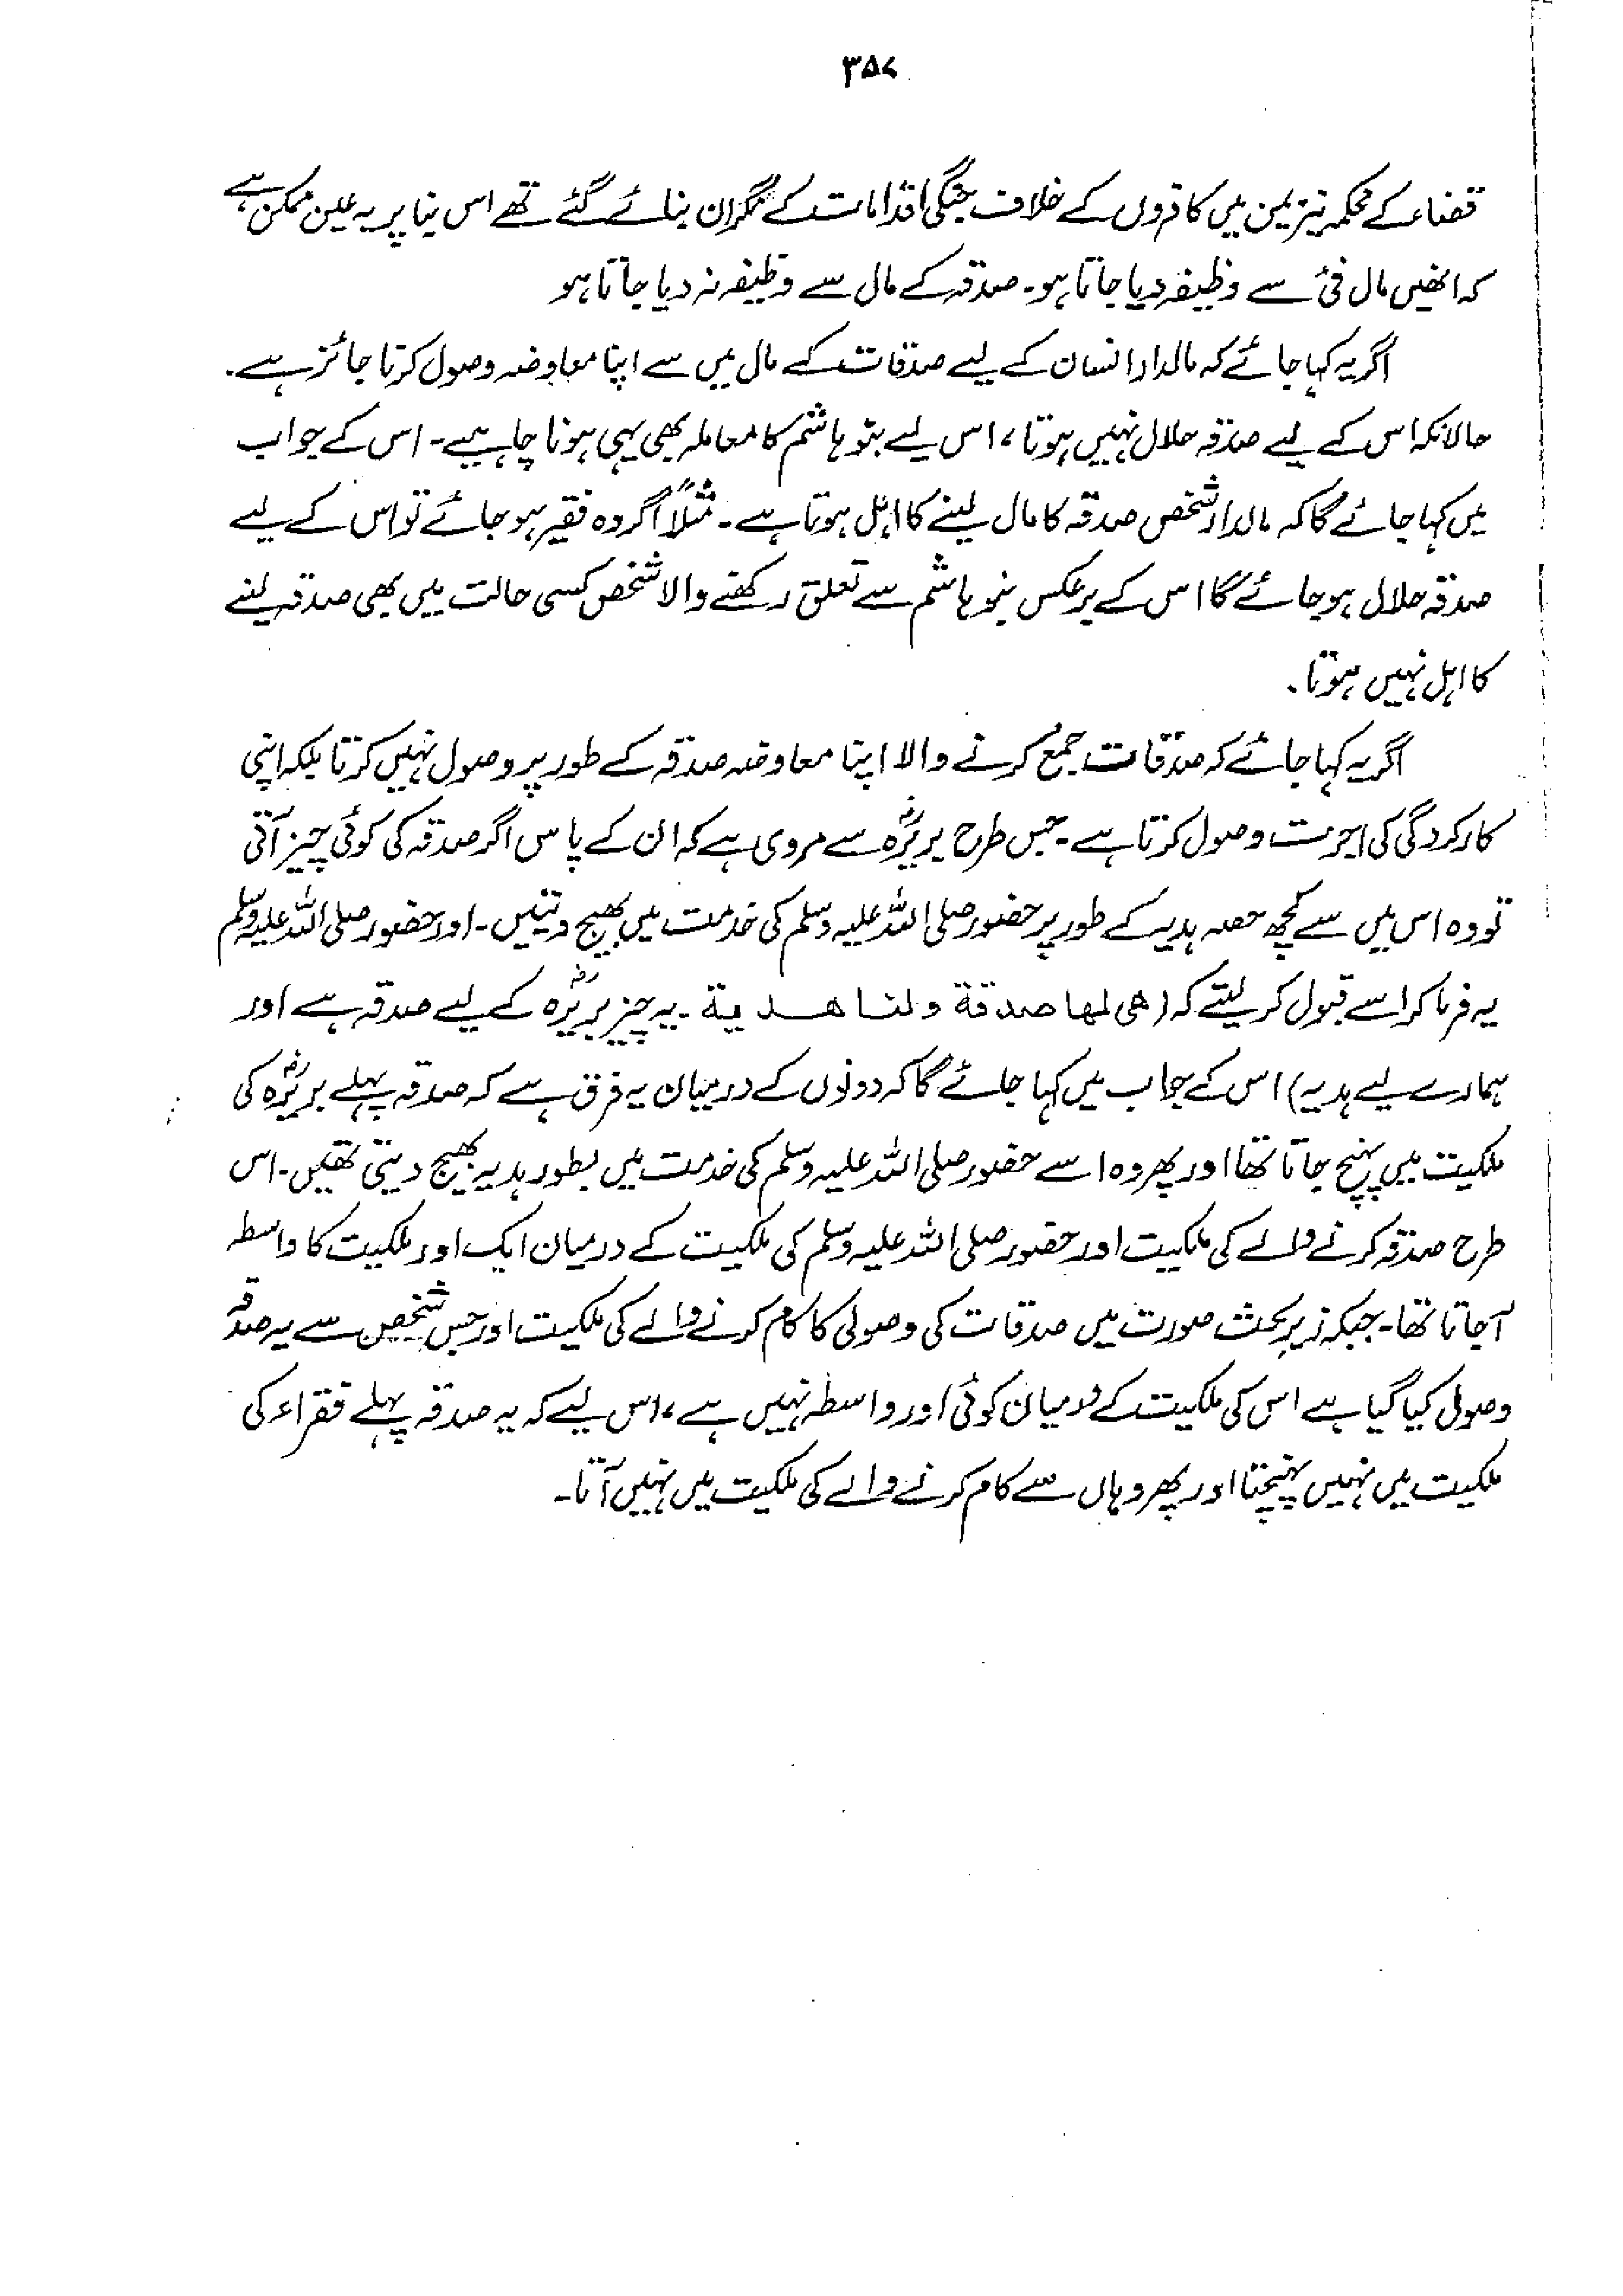 ۳۵۷
قضاء کے محکمہ نیز یمن میں کافروں کے خلاف جنگی اقدامات کے نگران بنائے گئے تھے اس بنا پر یہ عین ممکن ہے
کہ انھیں مال فئ سے وظیفہ دیا جاتا ہو۔ صدقہ کے مال سے وظیفہ نہ دیا جاتا ہو
اگر یہ کہا جائے کہ مالدار انسان کے لیے صدقات کے مال میں سے اپنا معاوضہ وصول کرنا جائز ہے۔
حالانکہ اس کے لیے صدقہ حلال نہیں ہوتا، اس لیے بنو ہاشم کا معاملہ بھی یہی ہونا چاہیے۔ اس کے جواب
میں کہا جائے گا کہ مالدار شخص صدقہ کا مال لینے کا اہل ہوتا ہے۔ مثلاً اگر وہ فقیر ہو جائے تو اس کے لیے
صدقہ حلال ہو جائے گا اس کے برعکس بنو ہاشم سے تعلق رکھنے والا شخص کسی حالت میں بھی صدقہ لینے
کا اہل نہیں ہوتا۔
اگر یہ کہا جائے کہ صدقات جمع کرنے والا اپنا معاوضہ صدقہ کے طور پر وصول نہیں کرتا بلکہ اپنی
کارکردگی کی اجرت وصول کرتا ہے۔ جس طرح بریرہؓ سے مروی ہے کہ ان کے پاس اگر صدقہ کی کوئی چیز آتی
تو وہ اس میں سے کچھ حصہ ہدیہ کے طور پر حضور صلی اللہ علیہ وسلم کی خدمت میں بھیج دیتیں۔ اور حضور صلی اللہ علیہ وسلم
یہ فرما کر اسے قبول کر لیتے کہ (ھی لھا صدقة ولنا ھدیة۔ یہ چیز بریرہؓ کے لیے صدقہ ہے اور
ہمارے لیے ہدیہ) اس کے جواب میں کہا جائے گا کہ دونوں کے درمیان یہ فرق ہے کہ صدقہ پہلے بریرہؓ کی
ملکیت میں پہنچ جاتا تھا اور پھر وہ اسے حضور صلی اللہ علیہ وسلم کی خدمت میں بطور ہدیہ بھیج دیتی تھیں۔ اس
طرح صدقہ کرنے والے کی ملکیت اور حضور صلی اللہ علیہ وسلم کی ملکیت کے درمیان ایک اور ملکیت کا واسطہ
آجاتا تھا۔ جبکہ زیر بحث صورت میں صدقات کی وصولی کا کام کرنے والے کی ملکیت اور جس شخص سے یہ صدقہ
وصول کیا گیا ہے اس کی ملکیت کے درمیان کوئی اور واسطہ نہیں ہے، اس لیے کہ یہ صدقہ پہلے فقراء کی
ملکیت میں نہیں پہنچتا اور پھر وہاں سے کام کرنے والے کی ملکیت میں نہیں آتا۔